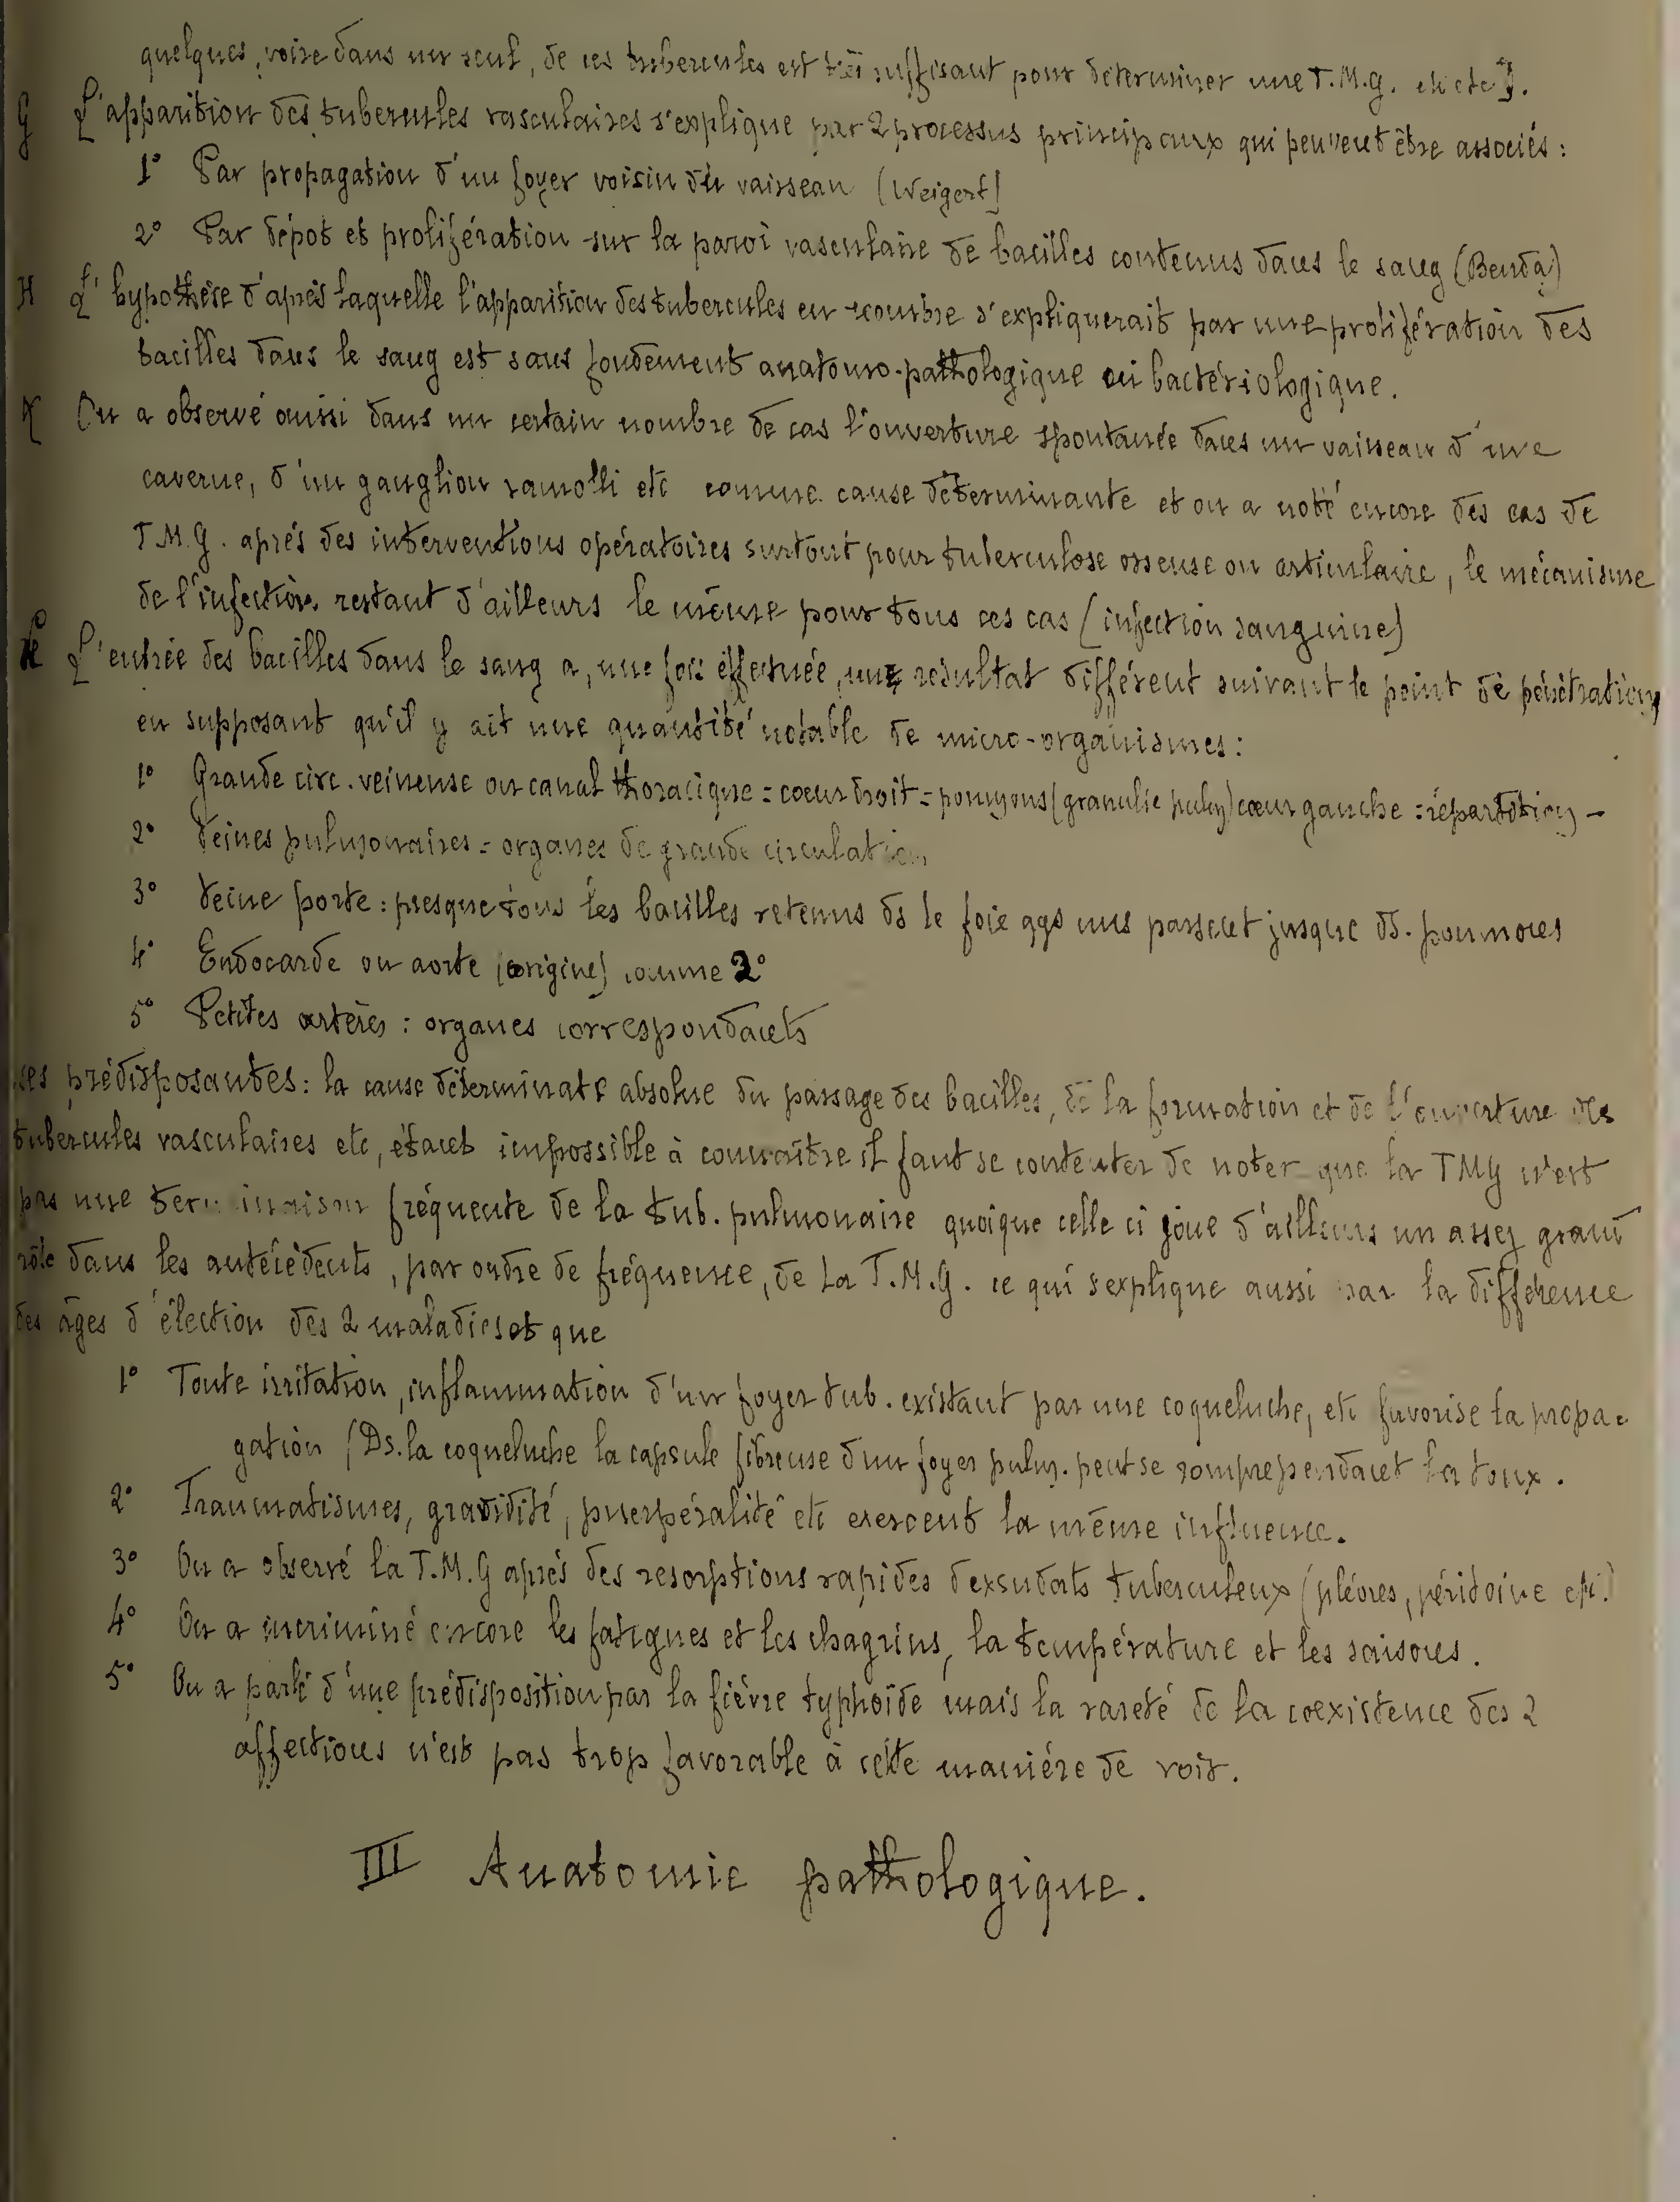 quelques, voire dans un seul, de ces tubercules est très suffisant pour déterminer une T.M.G.
G L'apparition des tubercules vasculaires s'explique par 2 processus principaux qui peuvent être associés :
1° Par propagation d'un foyer voisin du vaisseau (Weigert)
2° Par dépot et prolifération sur la paroi vasculaire de bacilles contenus dans le sang (Benda)
H L'hypothèse d'après laquelle l'apparition des tubercules en nombre s'expliquerait par une prolifération des
bacilles dans le sang est sans fondement anatomo-pathologique ou bactériologique.
On a observé aussi dans un certain nombre de cas l'ouverture spontanée dans un vaisseau d'une
caverne, d'un ganglion ramolli etc comme cause déterminante et on a noté encore des cas de
T.M.G. après des interventions opératoires surtout pour tuberculose osseuse ou articulaire, le mécanisme
de l'infection restant d'ailleurs le même pour tous ces cas (infection sanguine)
L'entrée des bacilles dans le sang a, une fois effectuée, un résultat différent suivant le point de pénétration
en supposant qu'il y ait une quantité notable de micro-organismes :
1° Grande circ. veineuse ou canal thoracique = cœur droit = poumons (granulie pulm) cœur gauche = répartition -
2° Veines pulmonaires = organes de grande circulation
3° Veine porte : presque tous les bacilles retenus ds le foie qqs uns passent jusque ds. poumons
4° Endocarde ou aorte (origine) comme 2°
5° Petites artères : organes correspondants
prédisposantes : la cause déterminate absolue du passage des bacilles, de la formation et de l'ouverture des
tubercules vasculaires etc, étant impossible à connaître il faut se contenter de noter que la TMG n'est
pas une terminaison fréquente de la tub. pulmonaire quoique celle ci joue d'ailleurs un assez grand
rôle dans les antécédents, par ordre de fréquence, de la T.M.G. ce qui s'explique aussi par la différence
des âges d'élection des 2 maladies et que
1° Toute irritation, inflammation d'un foyer tub. existant par une coqueluche, etc favorise la propa-
gation (Ds. la coqueluche la capsule fibreuse d'un foyer pulm. peut se rompre pendant la toux.
2° Traumatismes, gravidité, puerpéralité etc exercent la même influence.
3° On a observé la T.M.G après des resorptions rapides d'exsudats tuberculeux (plèvres, péritoine etc.)
4° On a incriminé encore les fatigues et les chagrins, la température et les saisons.
5° On a parlé d'une prédisposition par la fièvre typhoïde mais la rareté de la coexistence des 2
affections n'est pas trop favorable à cette manière de voir.
III Anatomie pathologique.